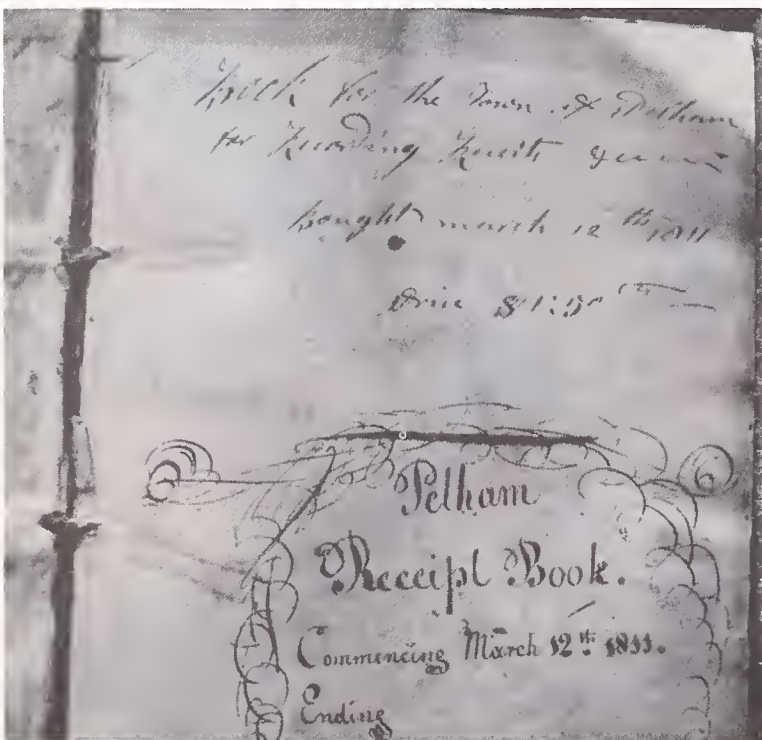 Book for the Town of Pelham
for Recording
bought march 12th 1811
Price $1:50
Pelham
Receipt Book.
Commencing March 12th 1811.
Ending